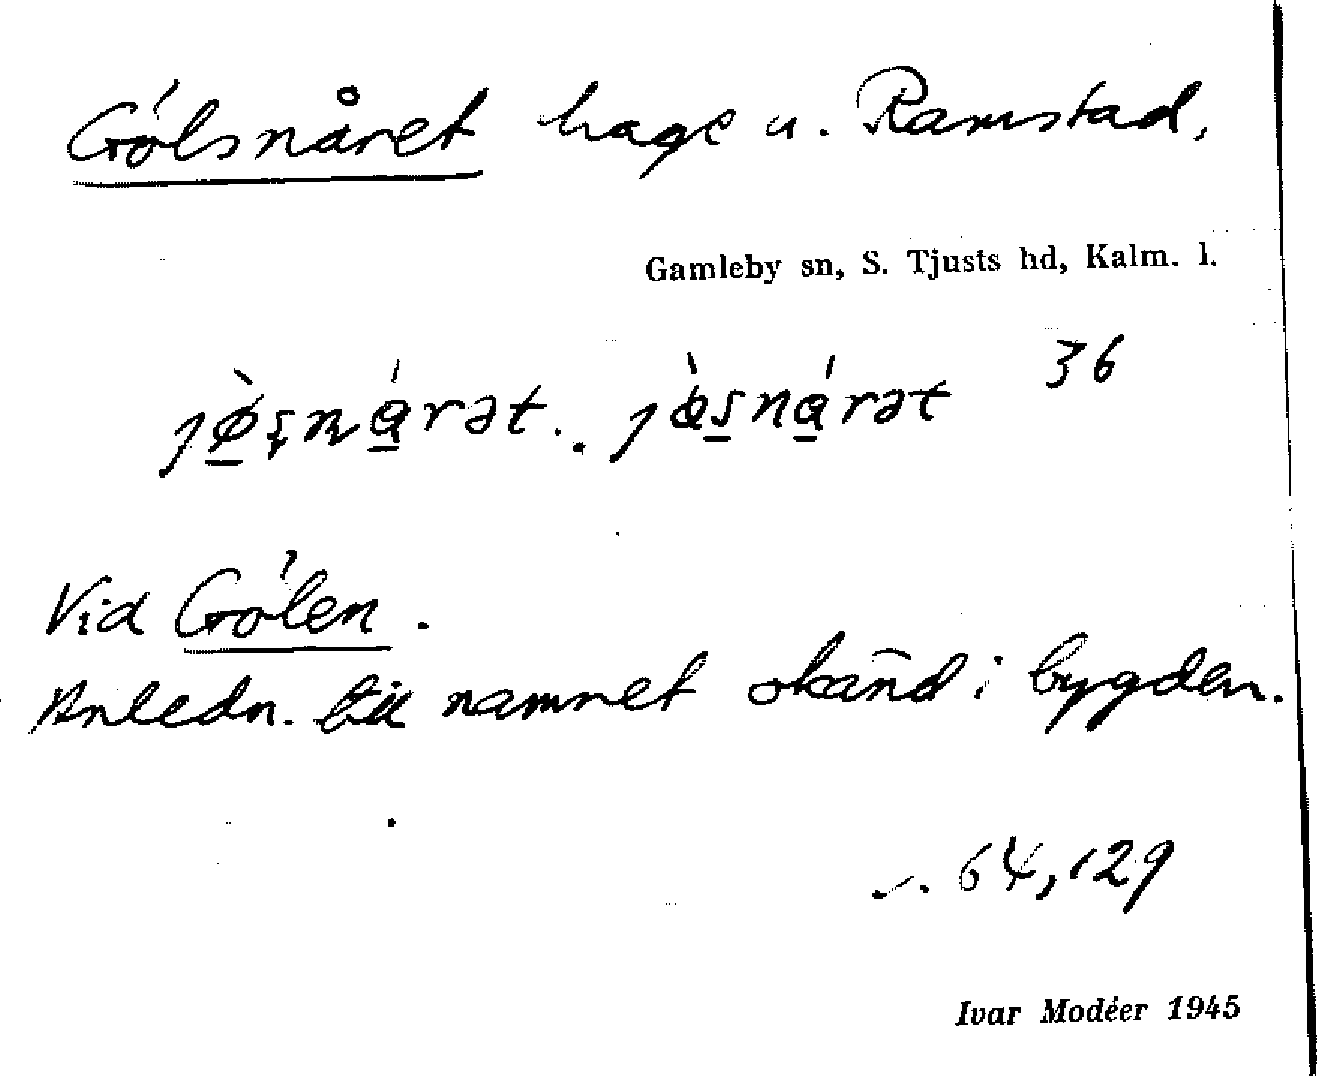 Gölsnåret hage u. Ramstad,
Gamleby sn, S. Tjusts hd, Kalm. l.
36
Vid Gölen.
Anledn. till namnet okänd i bygden.
64,129
Ivar Modéer 1945